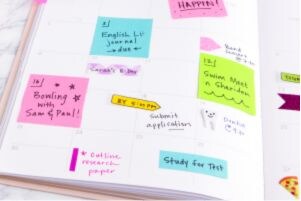 HAPPIN!
2
English Lit
journal
due
Sarah's B-Day
Hand
12
Swim Meet
@ Sheridan
16
Bowling
with
Sam & Paul!
BY 5:00 PM
Submit
application
Dentist
* Outline
research
paper
Study for Test